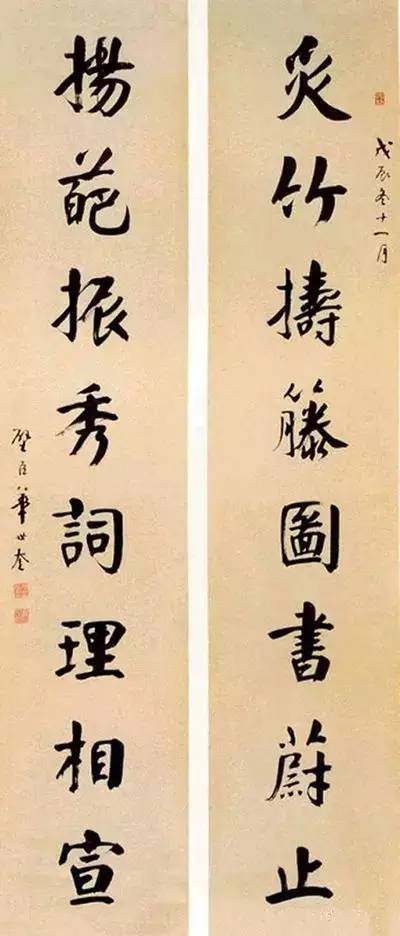 炙竹擣籐圖書蔚止
戊辰冬十一月
揚葩振秀詞理相宣
璧臣華世奎